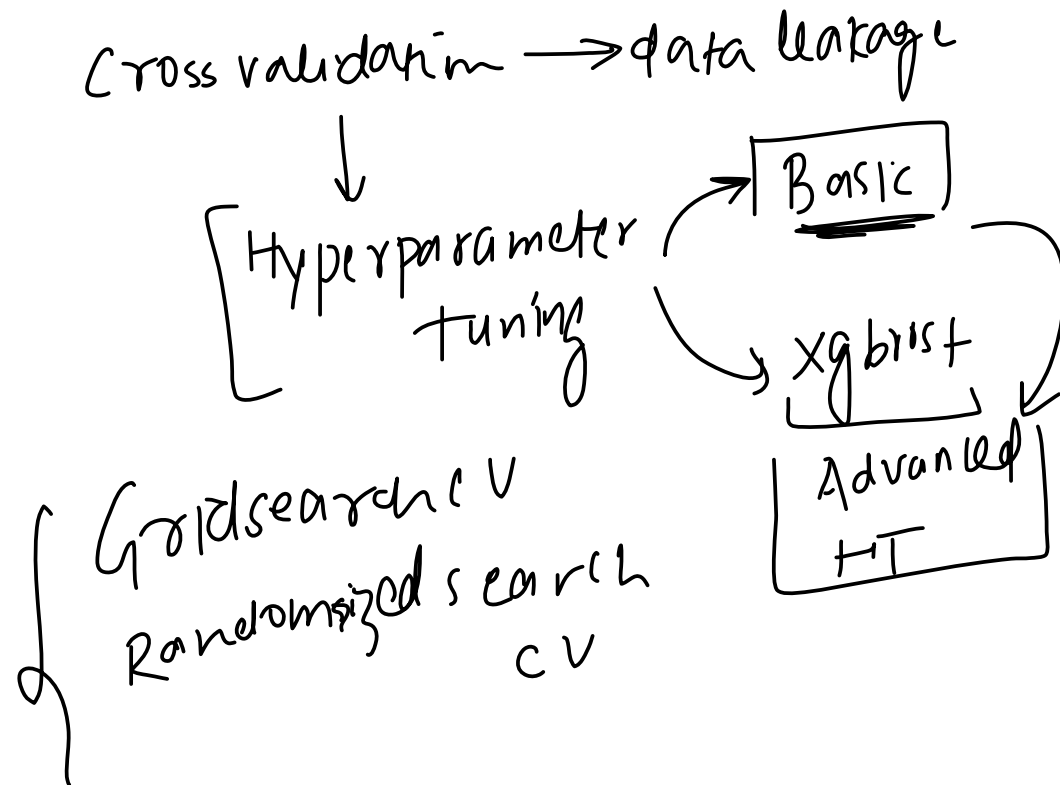 Cross validation → data leakage
Hyperparameter
tuning
Basic
xgboost
Advanced
HT
Gridsearch CV
Randomized search
CV